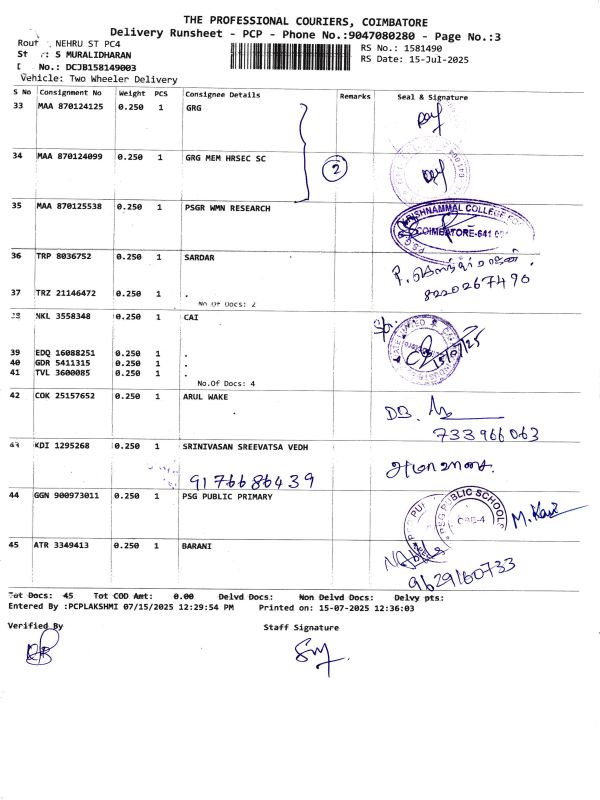 THE PROFESSIONAL COURIERS, COIMBATORE
Delivery Runsheet - PCP - Phone No.:9047080280 - Page No.:3
Rout : NEHRU ST PC4
RS No.: 1581490
St : S MURALIDHARAN
RS Date: 15-Jul-2025
D No.: DCJB158149003
Vehicle: Two Wheeler Delivery
S No Consignment No Weight PCS Consignee Details Remarks Seal & Signature
33 MAA 870124125 0.250 1 GRG
34 MAA 870124099 0.250 1 GRG MEM HRSEC SC
2
35 MAA 870125538 0.250 1 PSGR WMN RESEARCH
KRISHNAMMAL COLLEGE FOR
COIMBATORE-641 004
36 TRP 8036752 0.250 1 SARDAR
8220267490
37 TRZ 21146472 0.250 1 .
No Of Docs: 2
38 NKL 3558348 0.250 1 CAI
15/07/25
39 EDQ 16088251 0.250 1 .
40 GDR 5411315 0.250 1 .
41 TVL 3600085 0.250 1 .
No.Of Docs: 4
42 COK 25157652 0.250 1 ARUL WAKE
DB.
733966063
43 KDI 1295268 0.250 1 SRINIVASAN SREEVATSA VEDH
9176686439
அமாவாசை.
44 GGN 900973011 0.250 1 PSG PUBLIC PRIMARY
PSG PUBLIC SCHOOLS
CBE-4
45 ATR 3349413 0.250 1 BARANI
9629160733
Tot Docs: 45 Tot COD Amt: 0.00 Delvd Docs: Non Delvd Docs: Delvy pts:
Entered By :PCPLAKSHMI 07/15/2025 12:29:54 PM Printed on: 15-07-2025 12:36:03
Verified By Staff Signature